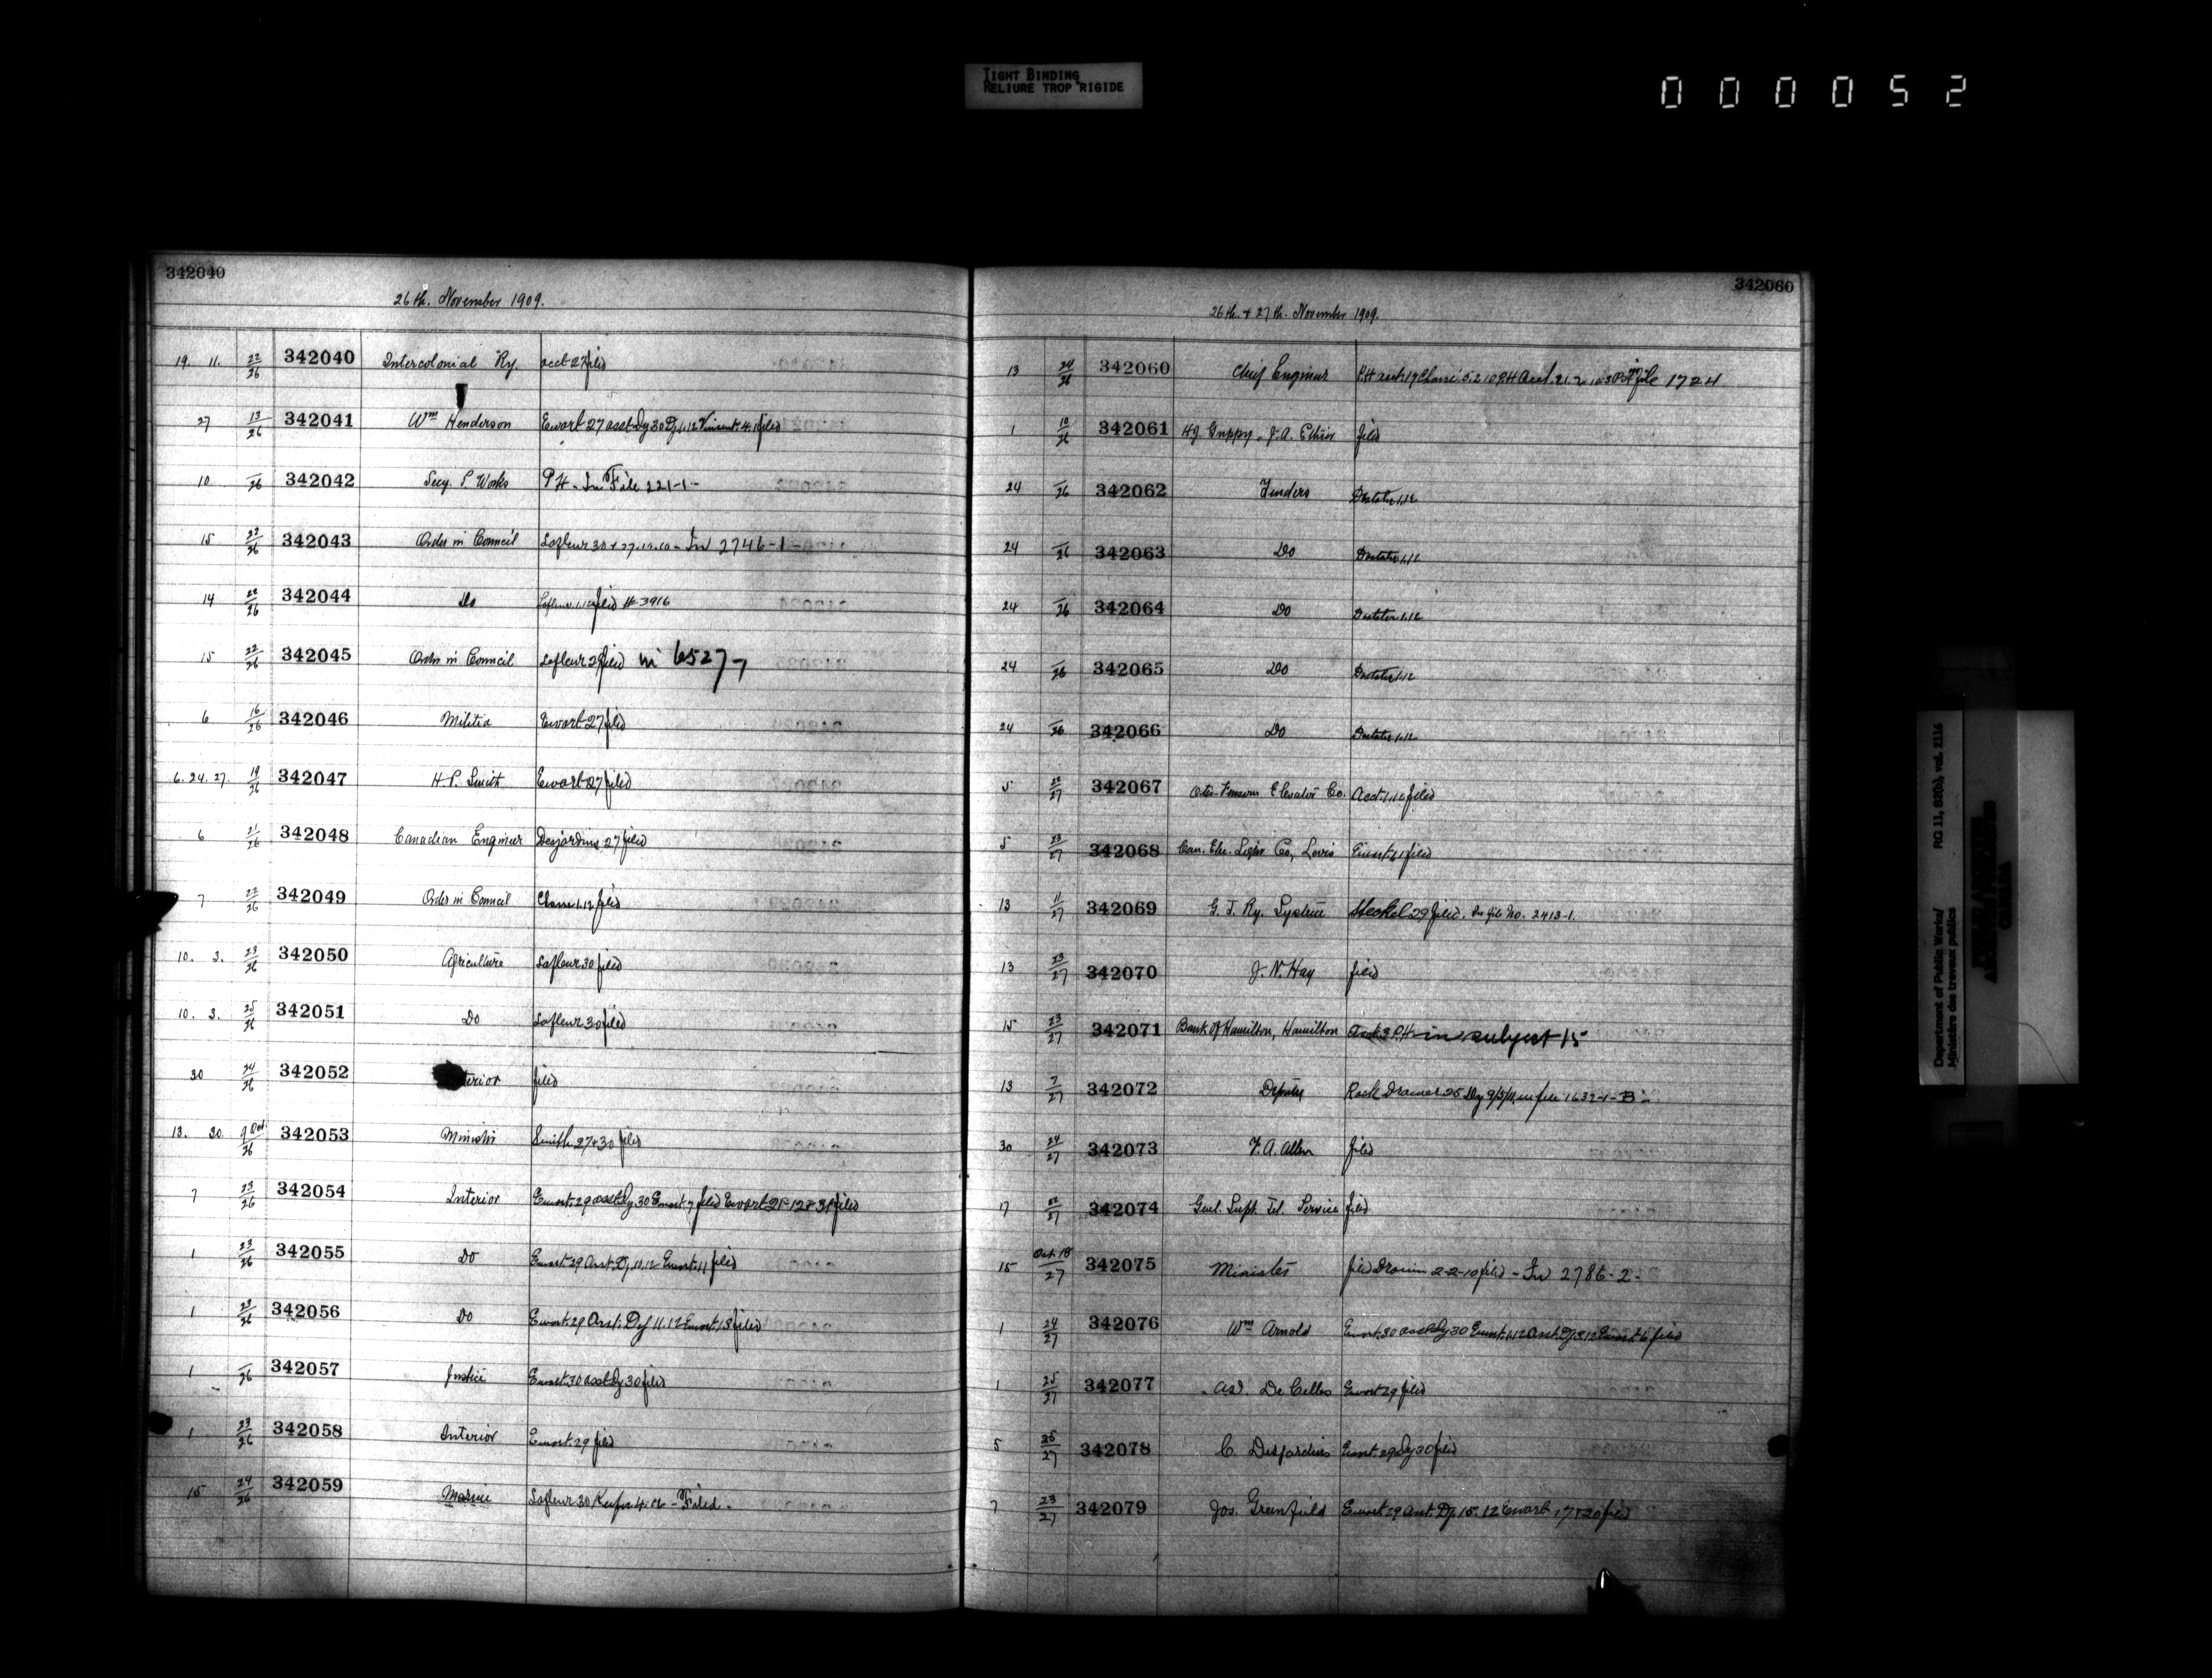 TIGHT BINDING
RELIURE TROP RIGIDE
000052
342040
26th. November 1909.
19. 11. 22/26 342040 Intercolonial Ry. acct 27 filed
27 13/26 342041 Wm Henderson Ewart 27 asst Dy 30 filed
10 —/26 342042 Secy. P. Works PH - In File 221-1-
15 22/26 342043 Order in Council Lafleur 30 + 27.12.10 - In 2746-1-
14 22/26 342044 Do Lafleur 1.12 filed # 3916
15 22/26 342045 Order in Council Lafleur 29 filed in 6527-
6 16/26 342046 Militia Ewart 27 filed
6. 24. 27. 19/26 342047 H. P. Smith Ewart 27 filed
6 21/26 342048 Canadian Engineer Desjardins 27 filed
7 22/26 342049 Order in Council 1.12 filed
10. 3. 23/26 342050 Agriculture Lafleur 30 filed
10. 3. 25/26 342051 Do Lafleur 30 filed
30 24/26 342052 terior filed
13. 30. 9 Oct/26 342053 Minister Smith 27 & 30 filed
7 23/26 342054 Interior Ewart 29 asst Dy 30 Ewart 7 filed Ewart 21-12 & 31 filed
1 23/26 342055 Do Ewart 29 Asst. Dy. 10.12 Ewart 11 filed
1 23/26 342056 Do Ewart 29 Asst. Dy 11.12 Ewart 13 filed
1 —/26 342057 Justice Ewart 30 asst Dy 30 filed
1 23/26 342058 Interior Ewart 29 filed
15 24/26 342059 Marine Lafleur 30 Keefer 4.12 - Filed -
342060
26th. & 27th. November 1909.
13 24/26 342060 Chief Engineer file 1724
1 10/26 342061 H.J. Guppy, J.A. Ethier filed
24 —/26 342062 Tenders 1.12
24 —/26 342063 Do 1.12
24 —/26 342064 Do 1.12
24 —/26 342065 Do 1.12
24 —/26 342066 Do 1.12
5 22/27 342067 Otis-Fensom Elevator Co. Acct. 1.12 filed
5 23/27 342068 Can. Elec. Light Co, Levis Ewart filed
13 11/27 342069 G. T. Ry. System Steckel 29 filed. In file No. 2413-1.
13 23/27 342070 J. N. Hay filed
15 23/27 342071 Bank of Hamilton, Hamilton P.H. in subject 15
13 7/27 342072 Deputy in file 1632-1-B-
30 24/27 342073 F. A. Allen filed
17 22/27 342074 Genl. Supt. Tel. Service filed
15 Oct. 18/27 342075 Minister filed 2-2-10 filed - In 2786-2-
1 24/27 342076 Wm Arnold Ewart 30 asst Dy 30 Ewart 1.12 Asst. Dy 3.12 Ewart 6 filed
1 25/27 342077 A.D. De Celles Ewart 29 filed
5 25/27 342078 C. Desjardins Ewart 29 Dy 30 filed
7 23/27 342079 Jos. Greenfield Ewart 29 Asst. Dy. 15.12 Ewart 17 & 20 filed
Department of Public Works/
Ministère des travaux publics
RG 11, B2(b), vol. 2116